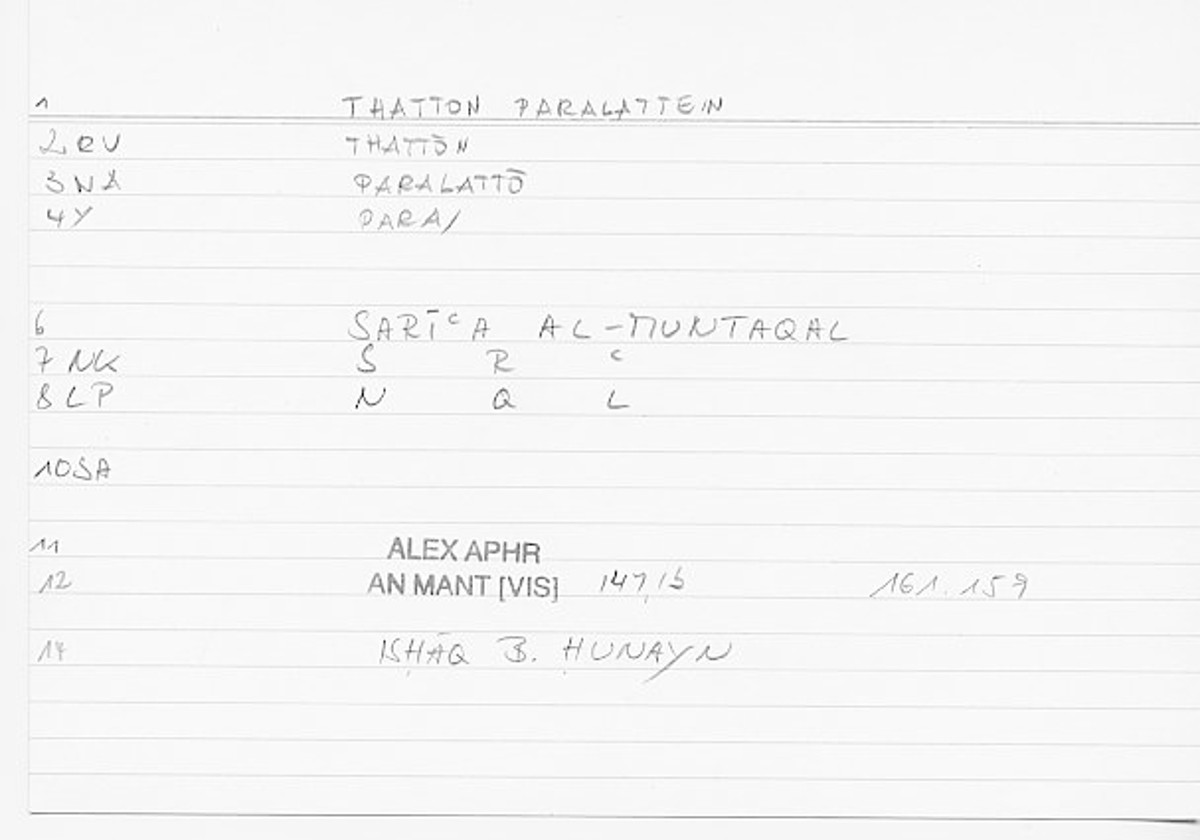 1 THATTON PARALATTEIN
2 RV THATTŌN
3 NA PARALATTŌ
4 Y PARA/
6 SARĪᶜA AL-MUNTAQAL
7 NK S R ᶜ
8 LP N Q L
10 SA
11 ALEX APHR
12 AN MANT [VIS] 147,15 161.159
14 ISḤĀQ B. ḤUNAYN